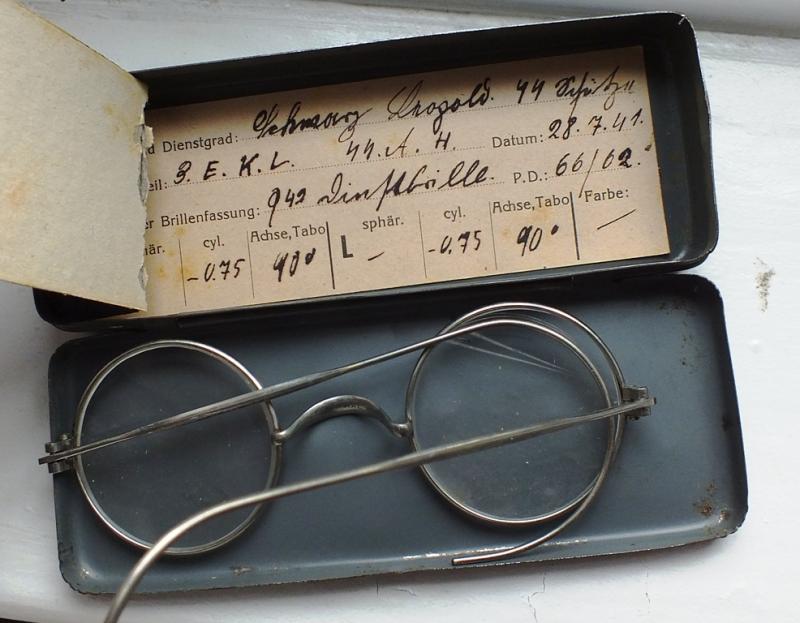 d Dienstgrad: Schwarz Leopold. ϟϟ Schütze
eil: 3. E. K. L. ϟϟ. A. H. Datum: 28.7.41.
er Brillenfassung: 942 P.D.: 66/62.
är. cyl. Achse, Tabo L sphär. cyl. Achse, Tabo Farbe:
-0.75 90° – -0.75 90° —